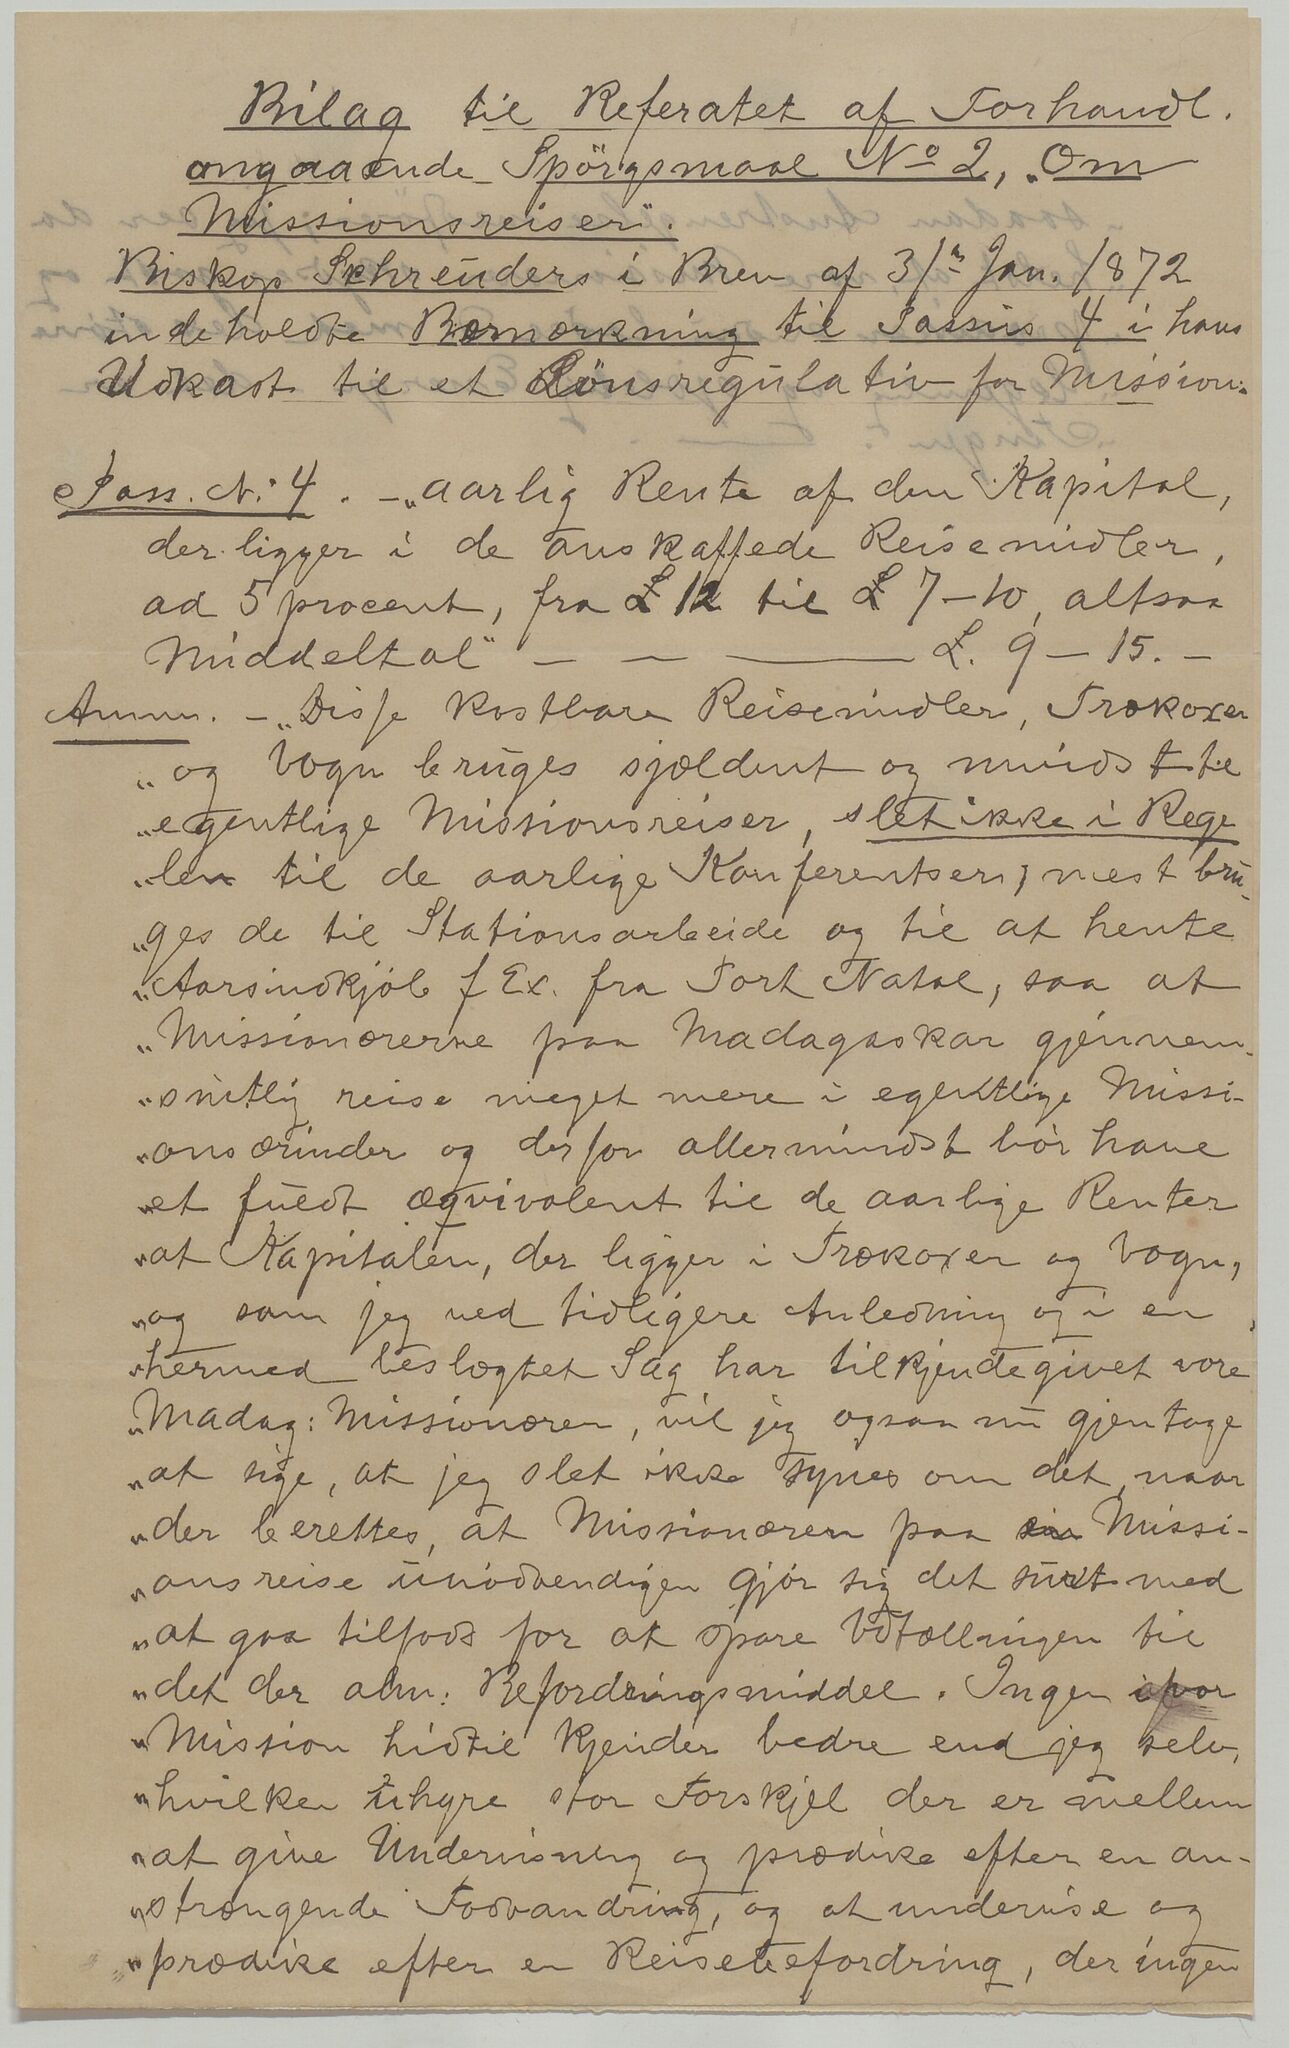 Bilag til Referatet af Forhandl.
angaaende Spörgsmaal No 2, „Om
Missionsreiser".
Biskop Schreuders i Brev af 31te Jan. 1872
indeholdte Bemærkning til Passus 4 i hans
Udkast til et Lönsregulativ for Mission:
Pass. N: 4. – „aarlig Rente af den Kapital,
der ligger i de anskaffede Reisemidler,
ad 5 procent, fra £ 12 til £ 7–10, altsaa
Middeltal" – – —— £. 9 – 15. –
Anm. – „Disse kostbare Reisemidler, Trækoxer
„og Vogn bruges sjældent og mindst til
„egentlige Missionsreiser, slet ikke i Rege
„len til de aarlige Konferentser; mest bru-
„ges de til Stationsarbeide og til at hente
„Aarsindkjöb f Ex. fra Port Natal, saa at
„Missionærerne paa Madagaskar gjennem-
„snitlig reise meget mere i egentlige Missi-
„onsærinder og derfor allermindst bör have
„et fuldt æqvivalent til de aarlige Renter
„at Kapitalen, der ligger i Trækoxer og Vogn,
„og som jeg ved tidligere Anledning og i en
„hermed beslægtet Sag har tilkjendegivet vore
„Madag: Missionærer, vil jeg ogsaa nu gjentage
„at sige, at jeg slet ikke synes om det, naar
„der berettes, at Missionæren paa sin Missi-
„onsreise unödvendigen gjör sig det surt med
„at gaa tilfods for at spare Udtællingen til
„det der alm: Befordringsmiddel. Ingen i vor
„Mission hidtil kjender bedre end jeg selv,
„hvilken uhyre stor Forskjel der er mellem
„at give Undervisning og prædike efter en an-
„strængende Fodvandring, og at undervise og
„prædike efter en Reisebefordring, der ingen